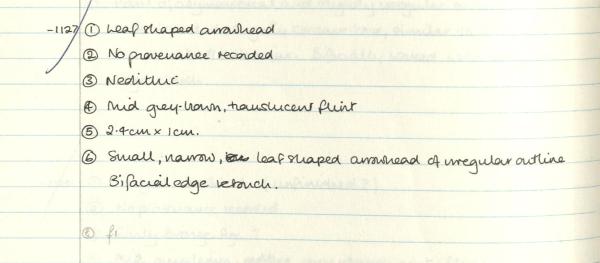 -1127 ① Leaf shaped arrowhead
② No provenance recorded
③ Neolithic
④ Mid grey-brown, translucent flint
⑤ 2.4cm x 1cm.
⑥ Small, narrow, leaf shaped arrowhead of irregular outline
Bifacial edge retouch.